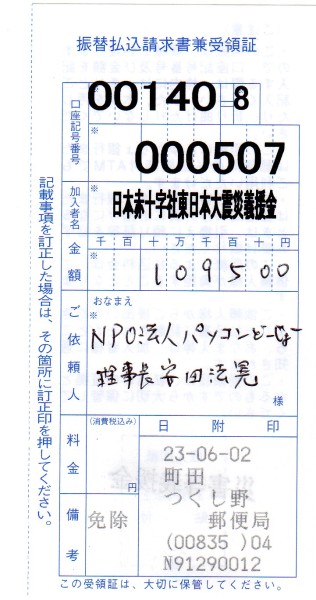 振替払込請求書兼受領証
口座記号番号
※
00140=8
※
000507
加入者名
日本赤十字社東日本大震災義援金
金額
千百十万千百十円
※
109500
ご依頼人
おなまえ
※
NPO法人パソコン
理事長安田法晃
様
料金
(消費税込み)
円
日附印
23-06-02
町田
つくし野
郵便局
(00835 )04
N91290012
備考
免除
記載事項を訂正した場合は、その箇所に訂正印を押してください。
この受領証は、大切に保管してください。